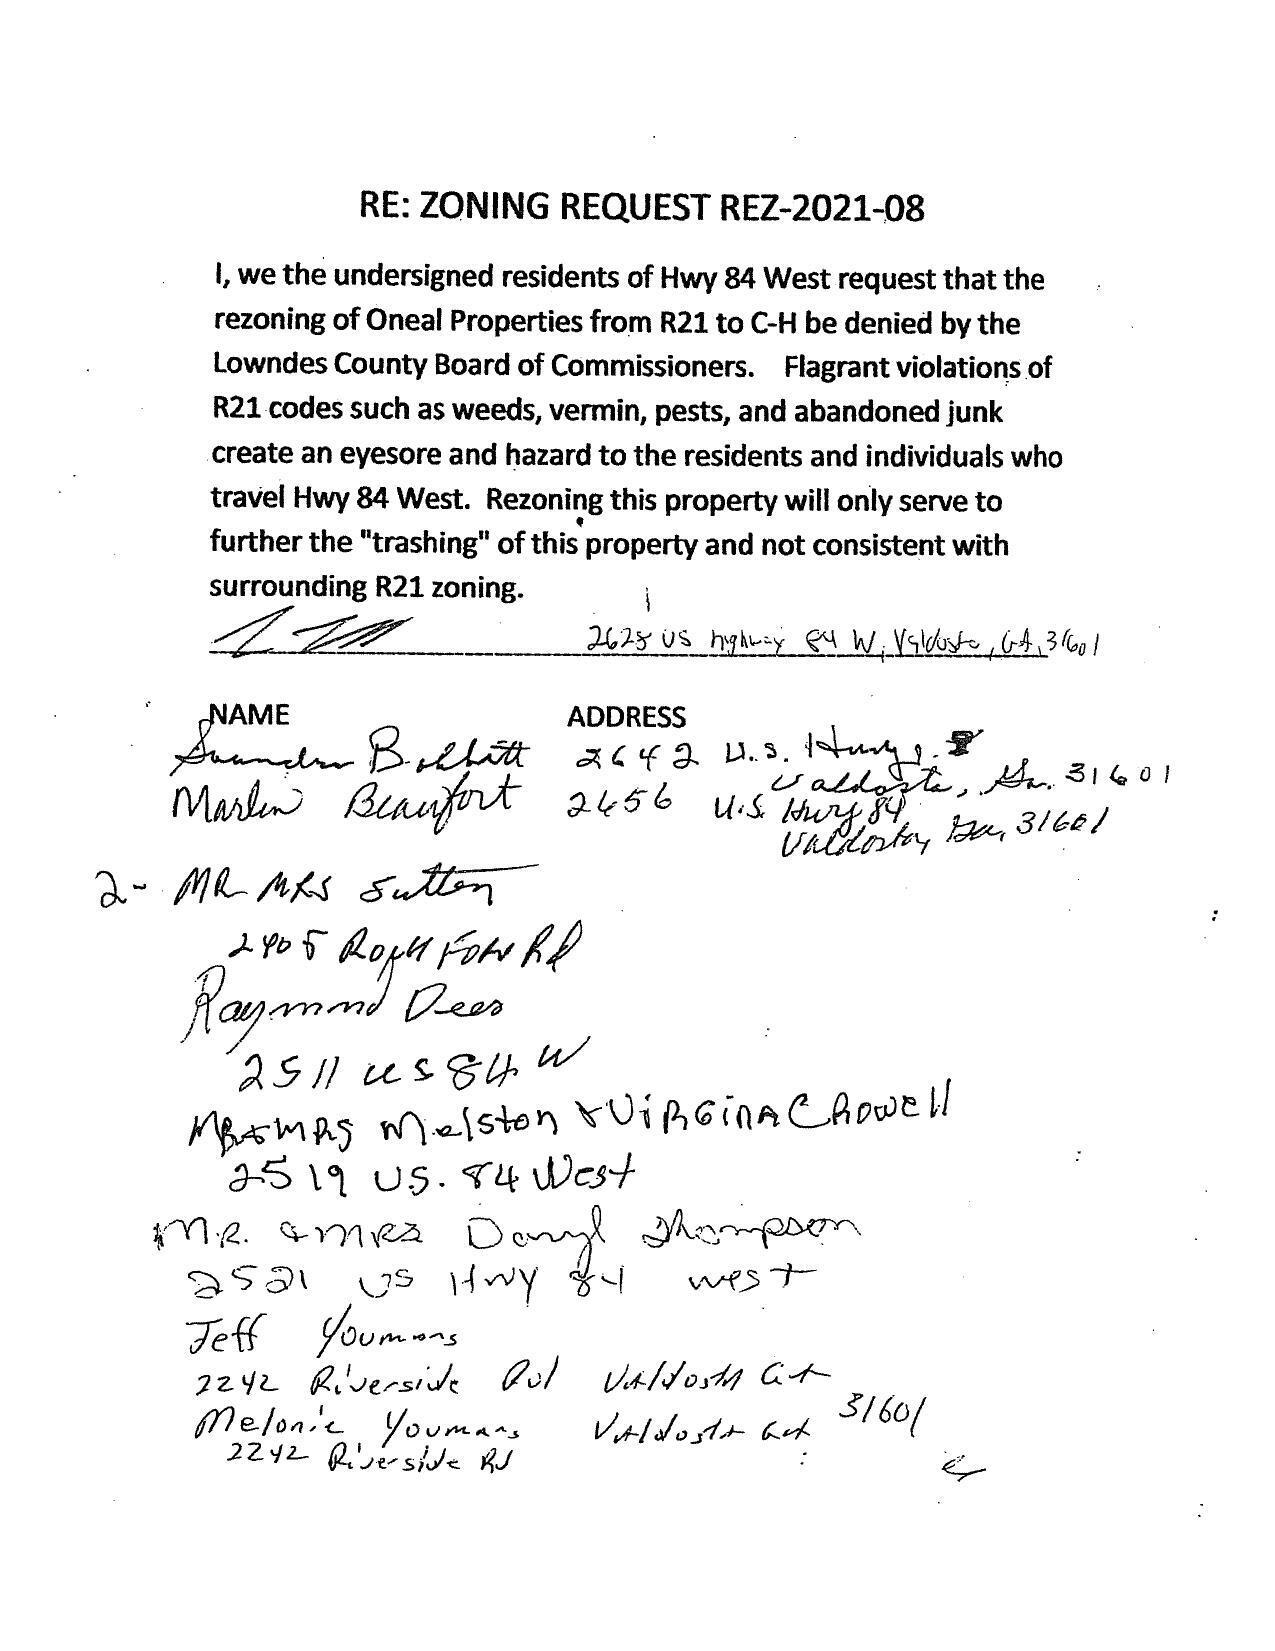 RE: ZONING REQUEST REZ-2021-08
I, we the undersigned residents of Hwy 84 West request that the
rezoning of Oneal Properties from R21 to C-H be denied by the
Lowndes County Board of Commissioners. Flagrant violations of
R21 codes such as weeds, vermin, pests, and abandoned junk
create an eyesore and hazard to the residents and individuals who
travel Hwy 84 West. Rezoning this property will only serve to
further the "trashing" of this property and not consistent with
surrounding R21 zoning.
US highway 84 W, Valdosta, GA, 31601
NAME ADDRESS
2642 U.S. Hwy
Valdosta, Ga. 31601
Marlin Beaufort 2656 U.S. Hwy 84
Valdosta, Ga, 31601
2- MR MRS Sutton
2405 Rd
Raymond Dees
2511 US 84 W
MR & MRS Melston & VIRGINA CROWEll
2519 US. 84 West
MR. & MRS Daryl Thompson
2521 US HWY 84 West
Jeff Youmans
2242 Riverside Rd Valdosta GA
31601
Melonie Youmans Valdosta GA
2242 Riverside Rd